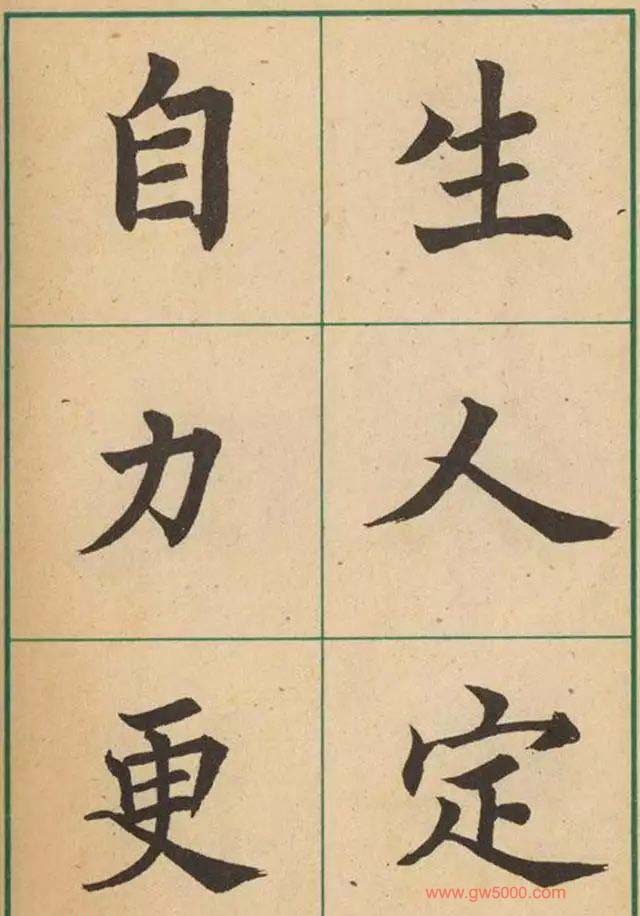 生人定
自力更
www.gw5000.com